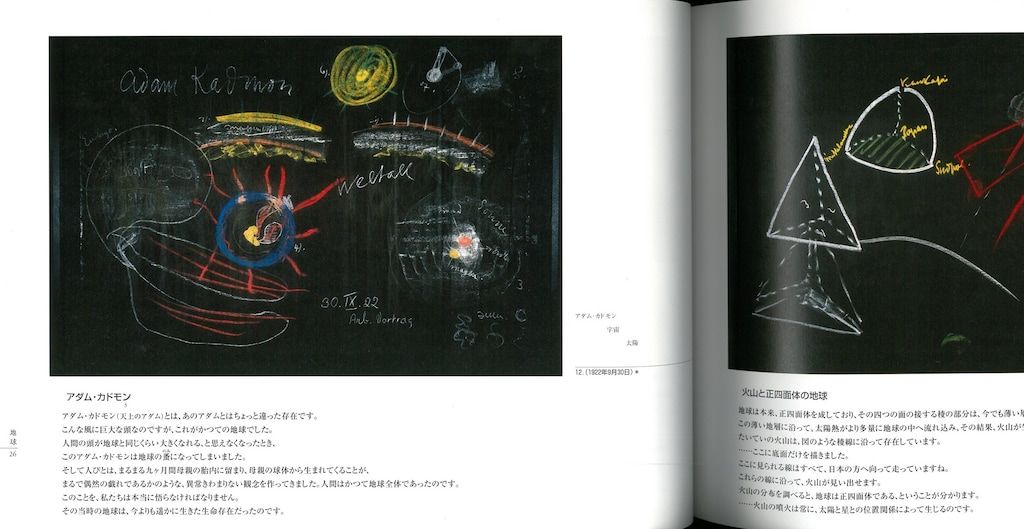 Adam Kadmon
Weltall
30.IX.22
Arb. Vortrag
アダム・カドモン
宇宙
太陽
12.(1922年9月30日)*
アダム・カドモン
アダム・カドモン(天上のアダム)とは、あのアダムとはちょっと違った存在です。
こんな風に巨大な頭なのですが、これがかつての地球でした。
人間の頭が地球と同じくらい大きくなれる、と思えなくなったとき、
このアダム・カドモンは地球の蚤になってしまいました。
そして人びとは、まるまる九ヶ月間母親の胎内に留まり、母親の球体から生まれてくることが、
まるで偶然の戯れであるかのような、異常きわまりない観念を作ってきました。人間はかつて地球全体であったのです。
このことを、私たちは本当に悟らなければなりません。
その当時の地球は、今よりも遥かに生きた生命存在だったのです。
地球
26
Japan
火山と正四面体の地球
地球は本来、正四面体を成しており、その四つの面の接する稜の部分は、今でも薄い
この薄い地層に沿って、太陽熱がより多量に地球の中へ流れ込み、その結果、火山が
たいていの火山は、図のような稜線に沿って存在しています。
……ここに底面だけを描きました。
ここに見られる線はすべて、日本の方へ向って走っていますね。
これらの線に沿って、火山が見い出せます。
火山の分布を調べると、地球は正四面体である、ということが分かります。
……火山の噴火は常に、太陽と星との位置関係によって生じるのです。